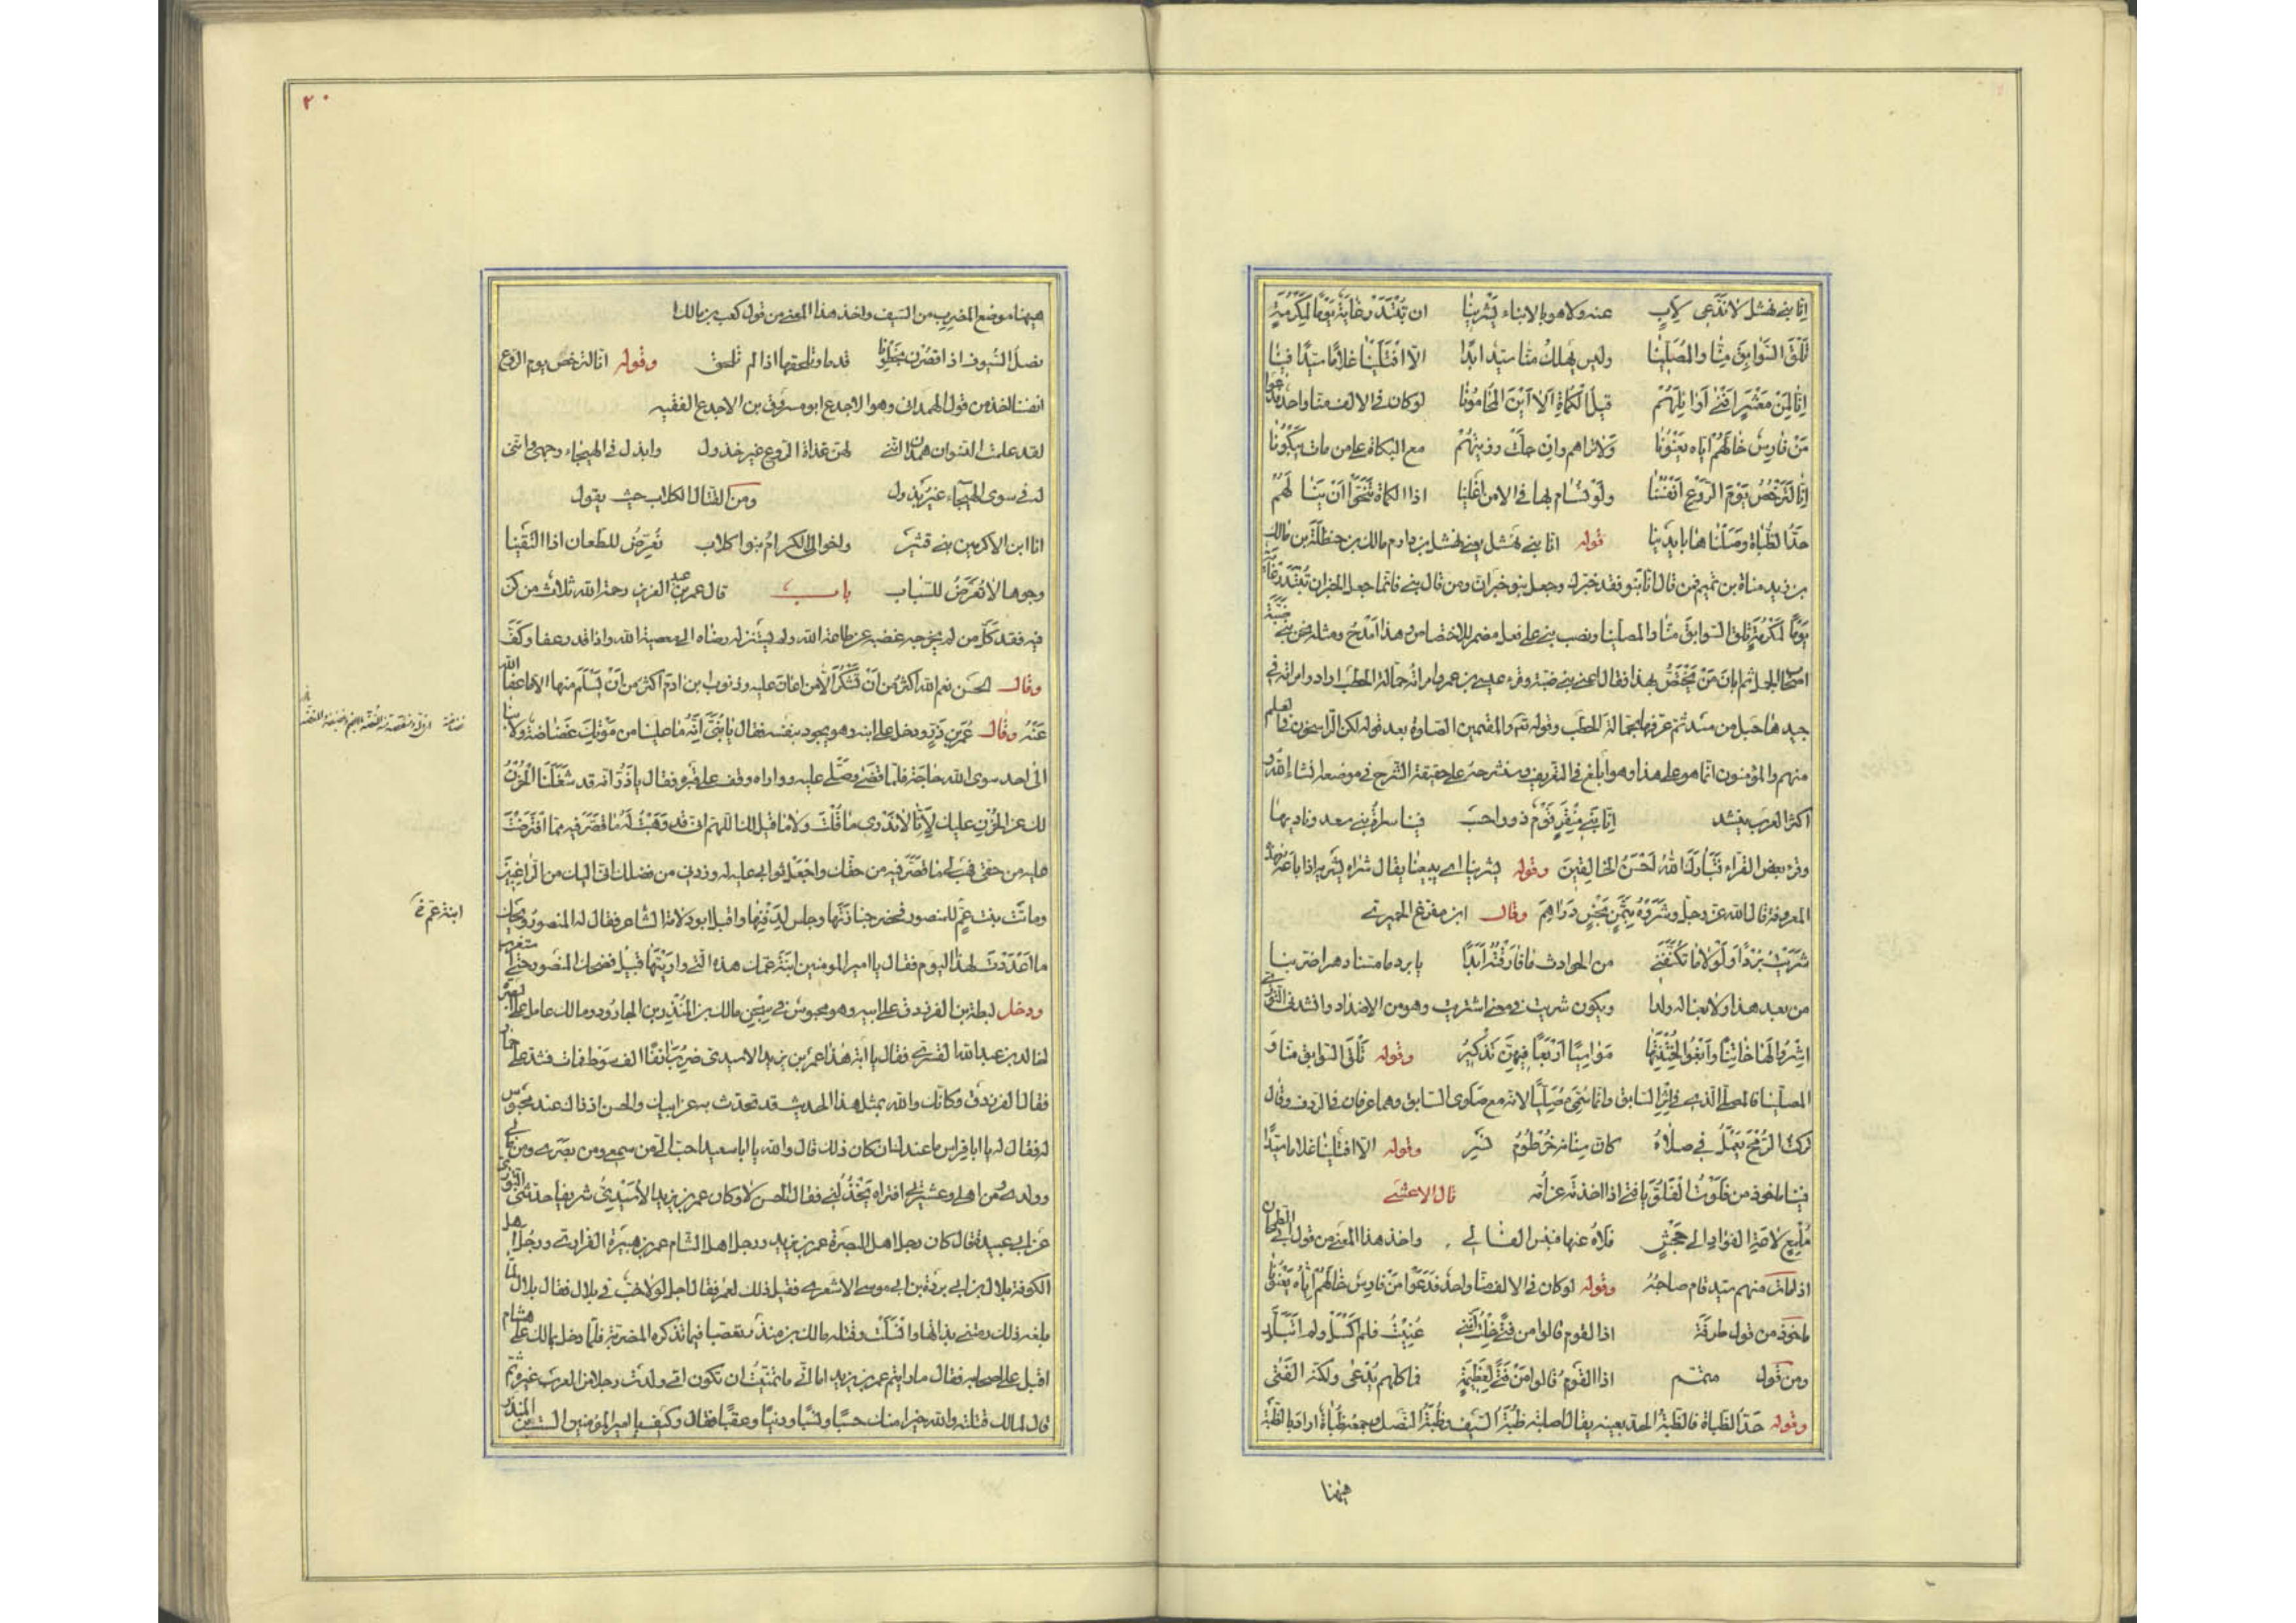 اِنّا بنے نهشل لا نَدَّعِى لِاَبٍ عنه ولا هو بالابناء يَشْرينا ان تُبْتَدَرْ غايَةٌ يَوْمًا لِمَكْرُمَةٍ
تَلْقَ السَّوابِقَ مِنّا والمُصَلّينا وليس يَهْلِكُ منّا سيّد ابدًا الّا افْتَلَيْنا غلامًا سيّدًا فينا
اِنّا لَمِنْ مَعْشَرٍ اَفْنى اَوائِلَهُمْ قيلُ الكُماةِ اَلا اَيْنَ المُحامُونا لو كان فى الالف منّا واحد فدعوا
مَنْ فارِسٌ خالَهُمْ ايّاه يَعْنُونا ولا تراهم وان جَلَّتْ رزيّتهُمْ مع البكاة على من مات يَبْكُونا
اِنّا لَنُرْخِصُ يَوْمَ الرَّوْعِ اَنْفُسَنا ولَوْ نُسام بها فى الامن اُغْلينا اذا الكماة تَنَحَّوْا اَنْ يَنالَهُمْ
حَدُّ الظُّباةِ وَصَلْناها بايدينا قوله انّا بنے نهشل يعنے نهشل بن دارم بن مالك بن حنظلة بن مالك
بن زيد مناة بن تميم فمن قال انّا بنو فقد خبّرك وجعل بنو خبر انّ ومن قال بنے فانّما جعل الخبر ان تُبْتَدَرْ غاية
يَوْمًا لِمَكْرُمَةٍ تلق السوابقَ منّا والمصلّينا ونصب بنے على فعل مضمر للاختصاص وهذا اَمْدَحُ ومثله نحن بنے ضَبَّةَ
اصحاب الجمل ثم ابان مَنْ يَخْتَصُّ بهذا فقال اعنے بنے ضبّة وقرء عيسى بن عمر وامراته حمالة الحطب اراد وامراته فى
جيدها حبل من مسد ثم عرّفها بحمالة الحطب وقوله تع والمقيمين الصلوة بعد قوله لكن الراسخون فى العلم
منهم والمؤمنون انّما هو على هذا وهو ابلغ فى التعريف وسنشرحه على حقيقة الشرح فى موضعه انشاء الله و
اكثر العرب ينشد اِنّا بَنى مِنْقَرٍ قَوْمٌ ذو واحسب فينا سراةُ بنے سعد وناديها
وقرء بعض القرّاء فَتَبارَكَ اللّٰهَ اَحْسَنَ الخالِقينَ وقوله يشرينا اے يبيعنا يقال شراه يشريه اذا باعه فهذه
المعروفة قال الله عزّ وجلّ وشَرَوْهُ بِثَمَنٍ بَخْسٍ دَراهِمَ وقال ابن مفرّغ الحميرى
شَرَيْتُ بُرْدًا ولَوْلا ما تَكَنَّفَنى من الحوادث ما فارَقْتُهُ اَبَدًا يا برد ما مسّنا دهر اضرّ بنا
من بعد هذا ولا بعنا له ولدا ويكون شريت فى معنى اشتريت وهو من الاضداد وانشدنے التوّزى
اشْرُوا لَها خاتِنًا وابْغُوا لِخُنْتَبِها مَواسِيًا اَرْبَعًا فيهنّ تَذْكيرُ وقوله تَلْقَ السوابق منّا و
المصلّينا فالمصلّى الذے فى اِثْرِ السابق وانّما سُمِّى مُصَلِّيًا لانّه مع صلوى السابق وهما عرقان فى الردف وقال
تركت الرُّمْحَ يَعْمَلُ فى صَلاهُ كانّ سِنانه خُرْطُومُ نسْر وقوله الّا افتلينا غلاما سيّدًا
فينا ماخوذ من فَلَوْتُ الفَلُوَّ يا فتى اذا اخذته عن اُمّه قال الاعشے
مُلْمِعٍ لاعَةِ الفؤادِ الى جَحْشٍ فَلاهُ عنها فبئس الفالى واخذ هذا المعنى من قول ابى الطمحان
اذا مات منهم سيد قام صاحبُهُ وقوله لو كان فى الالف منّا واحد فَدَعَوْا مَنْ فارِسٌ خالَهُمْ ايّاهُ يَعْنُونا
ماخوذ من قول طرفة اذا القوم قالوا من فَتًى خِلْتُ اَنَّنى عُنيتُ فلم اَكْسَلْ ولم اَتَبَلَّدِ
ومن قول متمّم اذا القَوْمُ قالوا مَنْ فَتًى لِعَظيمَةٍ فما كلّهم يُدْعى ولكنّه الفَتٰى
وقوله حَدُّ الظباة فالظبةُ الحدّ بعينه يقال اصابته ظُبَةُ السَّيف وظُبَةُ النَّصل وجمعه ظُباة اراد بالظُبَة
هيهنا
٢٠
هيهنا موضع المضرب من السّيف واخذ هذا المعنى من قول كعب بن مالك
نصل السّيوف اذا قصُرْنَ بخَطْوِنا قدما ونلحقها اذا لم تلحق وقوله انّا لنرخص يوم الرّوع
انفسنا اخذ من قول الهمدانى وهو الاجدع ابو مسروق بن الاجدع الفقيه
لقد علمت النسوان همدان انّنے لهنّ غداة الرّوع غير خذول وابذل فى الهيجاء وجهى وانّنى
له فى سوى الهيجاء غيرُ بَذول ومن القتال الكلابى حيث يقول
انا ابن الاكرمين بنے قشير واخوالى الكرامُ بنوا كلاب نُعرِّضُ للطعان اذا التقينا
وجوها لا تُعَرَّضُ للسّباب باب قال عمر بن عبد العزيز رحمة الله ثلاث من كنّ
فيه فقد كَمُلَ من لم يخرجه غضبه عن طاعة الله ولم يستنزله رضاه الى معصية الله واذا قدر عفا وكَفَّ
وقال الحسن نعم الله اكثر من اَنْ تُشْكَرَ الّا من اعان عليه وذنوب ابن ادم اكثر من اَنْ يَسْلَمَ منها الّا ما عفا الله
عَنْهُ وقال عُمَر بن ذَرٍّ ودخل على ابنه وهو يجود بنفسه فقال يا بُنَىَّ اِنَّه ما علينا من مَوْتِكَ غَضاضة ولا بنا
الى احد سوى الله حاجَة فلمّا قضى وصَلّى عليه وواراه وقف على قبره فقال يا ذَرُّ انّه قد شَغَلَنا الحُزْنُ
لك عن الحُزْنِ عليك لِاَنّا لا نَدْرى ما قُلْتَ ولا ما قيل لك اللّهم انّى قد وَهَبْتُ لَهُ ما قصّر فيه ممّا افْتَرَضْتَ
عليه من حقّى فهَبْ له ما قصّر فيه من حقّك واجْعَلْ ثوابى عليه له وزدنى من فضلك انّى اليك من الرّاغبين
وماتَتْ بنت عمٍّ للمنصور فحضر جنازَتَها وجلس لِدَفْنِها واقبل ابو دلامة الشاعر فقال له المنصورُ ويحك
ما اَعْدَدْتَ لهذا اليوم فقال يا امير المومنين ابْنَةَ عمّك هذه الّتى واريْتَها قُبَيْلُ فضحك المنصور حتى استغرب
ودخل لبطة بن الفرزدق على ابيه وهو محبوسٌ فى سِجْنِ مالك بن المُنْذِر بن الجارُود ومالك عامل على البصرة
لخالد بن عبد الله القسرى فقال يا ابه هذا عمر بن يزيد الاسيدى ضُرِبَ انفًا الف سَوْط فمات
فقال الفرزدق وكانّك والله بمثل هذا الحديث قد تحدّث به عن ابيك والحسن اذ ذاك عند محبُوس
له فقال له يا ابا فراس ما عند ان كان ذلك قال والله يا ابا سعيد احبّ الىّ من سمعى ومن بصرى ومن مالى
وولدى ومن اهلى وعشيرتى افتراه يَخْذُلُنى فقال الحسن لا وكان عمر بن يزيد الاُسَيْدىّ شريفا حدثنى التوزى
عن ابى عبيدة قال كان رجل اهل البصرة عمر بن يزيد ورجل اهل الشام عمر بن هبيرة الفزارى ورجل اهل
الكوفة بلال بن ابى بردة بن ابى موسى الاشعرى فقيل ذلك لعمر فقال اجل لولا خبّ فى بلال فقال بلال لمّا
بلغه ذلك رمتنى بدائها وانْسَلَّتْ وقتله مالك بن منذر تعصّبا فيما تذكره المضرية فلمّا دخل مالك على هشام
اقبل على اصحابه فقال ما رايتم عمر بن يزيد اما انّى ما تمنّيتُ ان تكون امّى ولدت رجلا من العرب غيره ثم
قال لمالك قتلته والله خيرا منك حسبًا ونسبًا ودينًا وعقبًا فقال وكيف يا امير المؤمنين الست ابن المنذر
ابنة عمّ